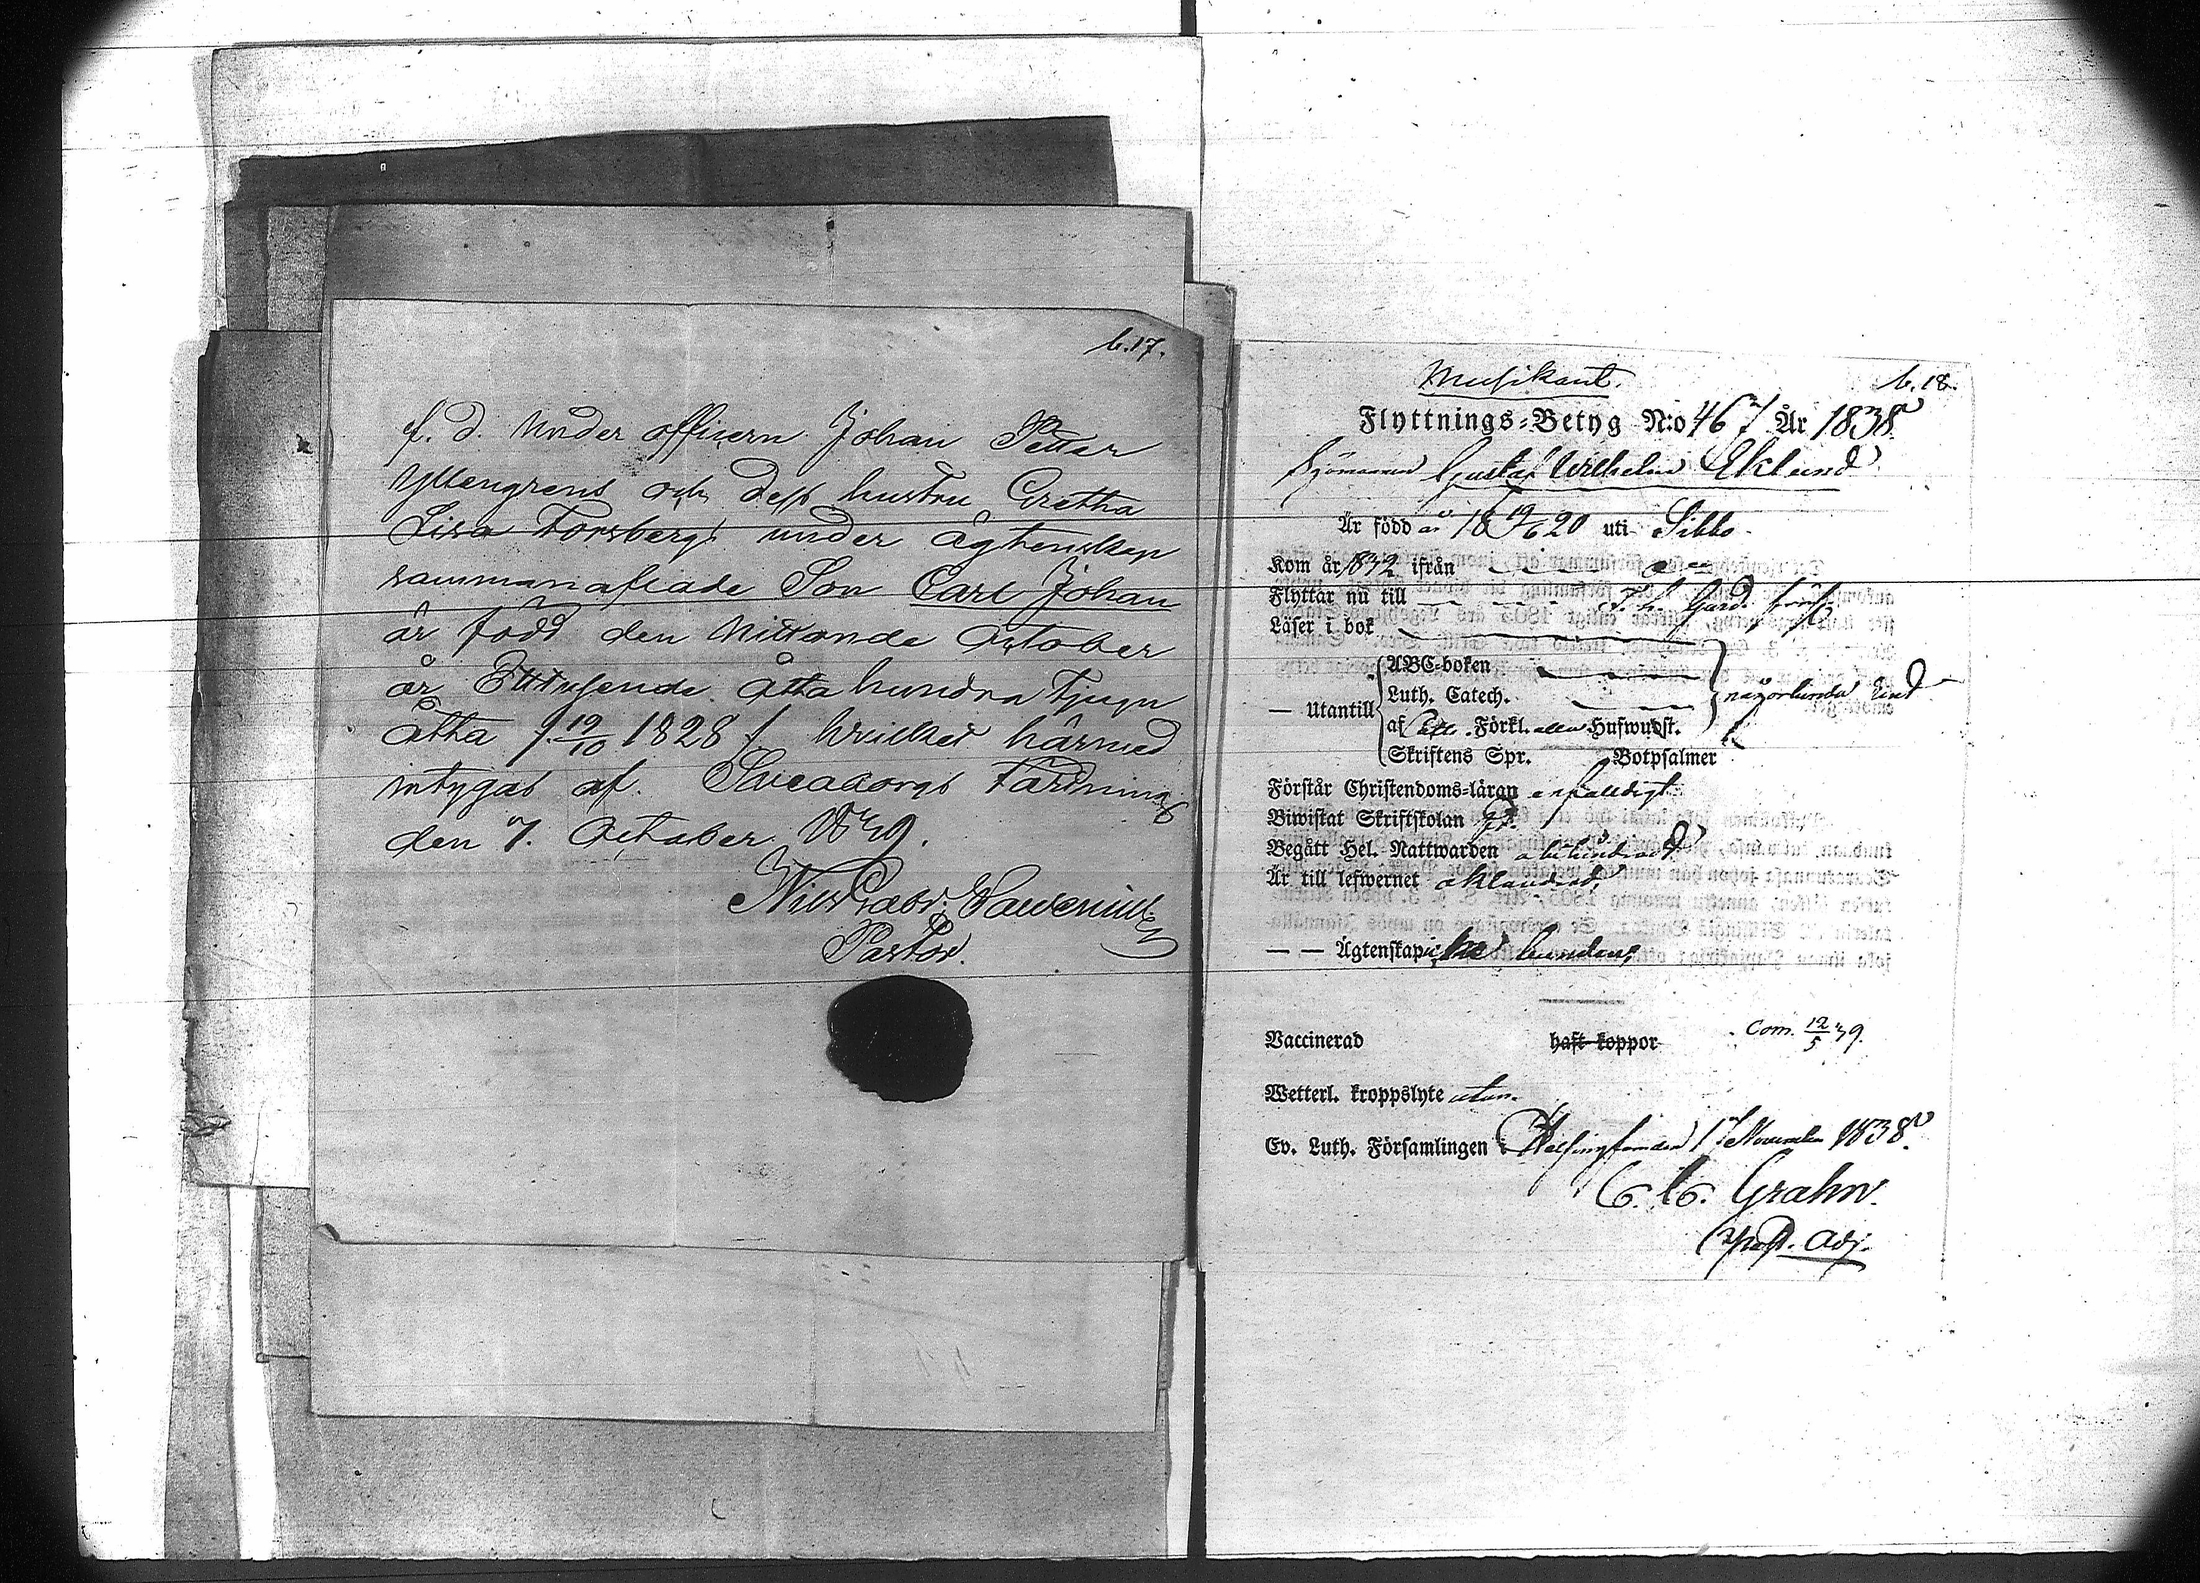 b. 17.
f. d. Under officern Johan Petter
Yttengrens och dess hustru Gretha
Lisa Forsbergs under ägtenskap
sammanaflade Son Carl Johan
är född den Nittonde October
år Ettusende åtta hundra tjugu
åtta /. 19/10 1828 / hvilket härmed
intygas af. Sveaborgs Fästning
den 7. October 1839.
Nils Gabr:
Pastor.
Musikant.
b. 18.
Flyttnings-Betyg N:o 467 År 1838
Sjömannen Gustaf Wilhelm Eklund
Är född år 18 19/6 20 uti Sibbo.
Kom år 1832 ifrån
Flyttar nu till F. h. Gard.
Läser i bok
ABC-boken
Luth. Catech.
— Utantill någorlunda lärt
af Förkl. Hufwudst.
Skriftens Spr. Botpsalmer
Förstår Christendoms-läran enfaldigt
Biwistat Skriftskolan
Begått Hel. Nattwarden obehindrad
Är till lefwernet oklandrad,
— — Ägtenskap icke bunden;
Vaccinerad haft koppor
Com. 12/5 39.
Wetterl. kroppslyte utan.
Ev. Luth. Församlingen i Helsingfors den 17 November 1838.
C. G. Grahn.
Past. Adj.